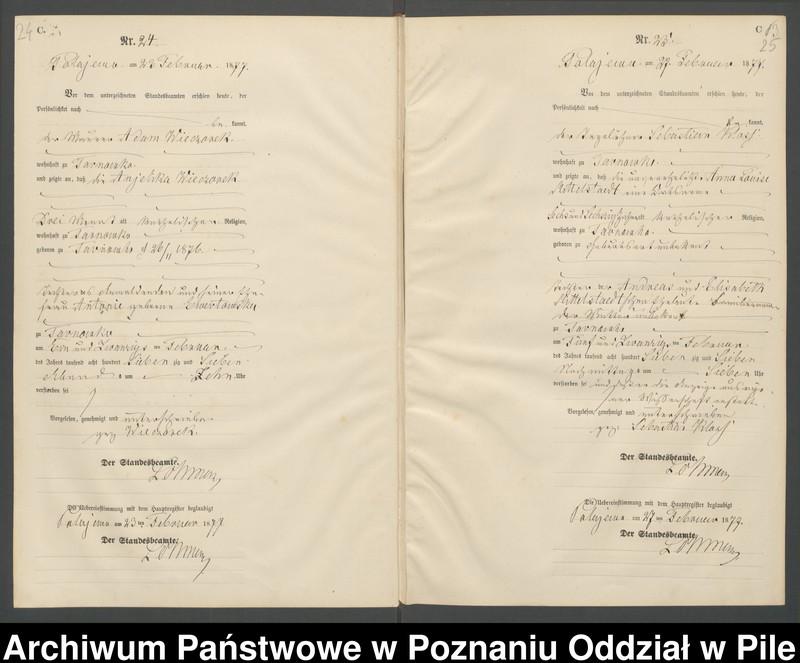 24
C.
Nr. 24.
Polajewo am 23 Februar 1877.
Vor dem unterzeichneten Standesbeamten erschien heute, der
Persönlichkeit nach
be kannt,
der Maurer Adam Wieczorek
wohnhaft zu Tarnowko
und zeigte an, daß die Anjelika Wieczorek
Drei Monat alt katholischer Religion,
wohnhaft zu Tarnowko
geboren zu Tarnowko d 26/11 1876.
Tochter des Anmeldenden und seiner Ehe-
frau Antonie geborene
zu Tarnowko
am Ein und Zwanzigs ten Februar
des Jahres tausend acht hundert Sieben zig und Sieben
Abend s um Zehn Uhr
verstorben sei
Vorgelesen, genehmigt und unterschrieben
gez Wieczorek.
Der Standesbeamte.
Die Uebereinstimmung mit dem Hauptregister beglaubigt
Polajewo am 23 ten Februar 1877
Der Standesbeamte.
C
25
Nr. 25
Polajewo am 27 Februar 1877.
Vor dem unterzeichneten Standesbeamten erschien heute, der
Persönlichkeit nach
be kannt,
der Tagelöhner Sebastian
wohnhaft zu Tarnowko
und zeigte an, daß die unverehelichte Anna Louise
Mittelstaedt eine Ortsarme
Sechs und Sechszig Jahre alt katholischer Religion,
wohnhaft zu Tarnowko
geboren zu Geburtsort unbekannt
Tochter der Andreas und Elisabeth
Mittelstaedtschen Eheleute Familienname
der Mutter unbekannt
zu Tarnowko
am Fünf und Zwanzigs ten Februar
des Jahres tausend acht hundert Sieben zig und Sieben
Nachmittag s um Sieben Uhr
verstorben sei und er die Anzeige aus eige-
ner Wissenschaft erstatte.
Vorgelesen, genehmigt und unterschrieben
gez Sebastian
Der Standesbeamte.
Die Uebereinstimmung mit dem Hauptregister beglaubigt
Polajewo am 27 ten Februar 1877.
Der Standesbeamte.
Archiwum Państwowe w Poznaniu Oddział w Pile